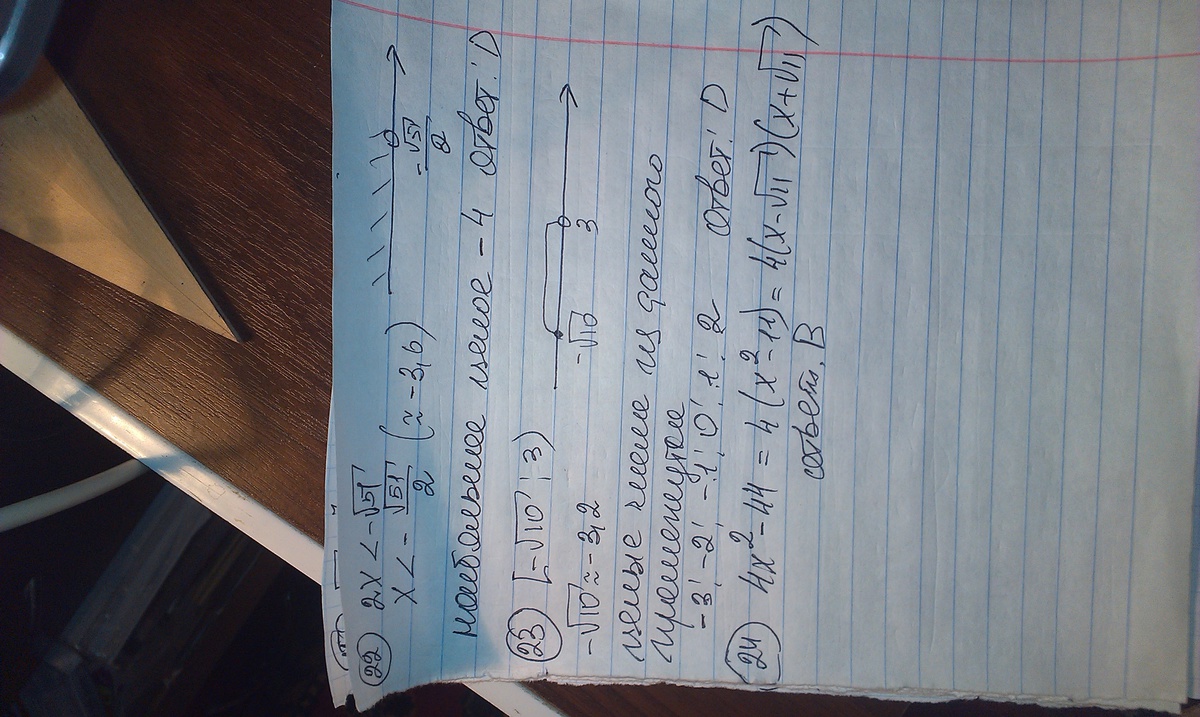 22 2x < -√51
x < -√51/2 (≈ -3,6)
-√51/2
наибольшее целое - 4 ответ: D
23 [-√10; 3)
-√10 ≈ -3,2
-√10 3
целые числа из данного
промежутка
-3; -2; -1; 0; 1; 2 ответ: D
24 4x² - 44 = 4(x² - 11) = 4(x - √11)(x + √11)
ответ: B